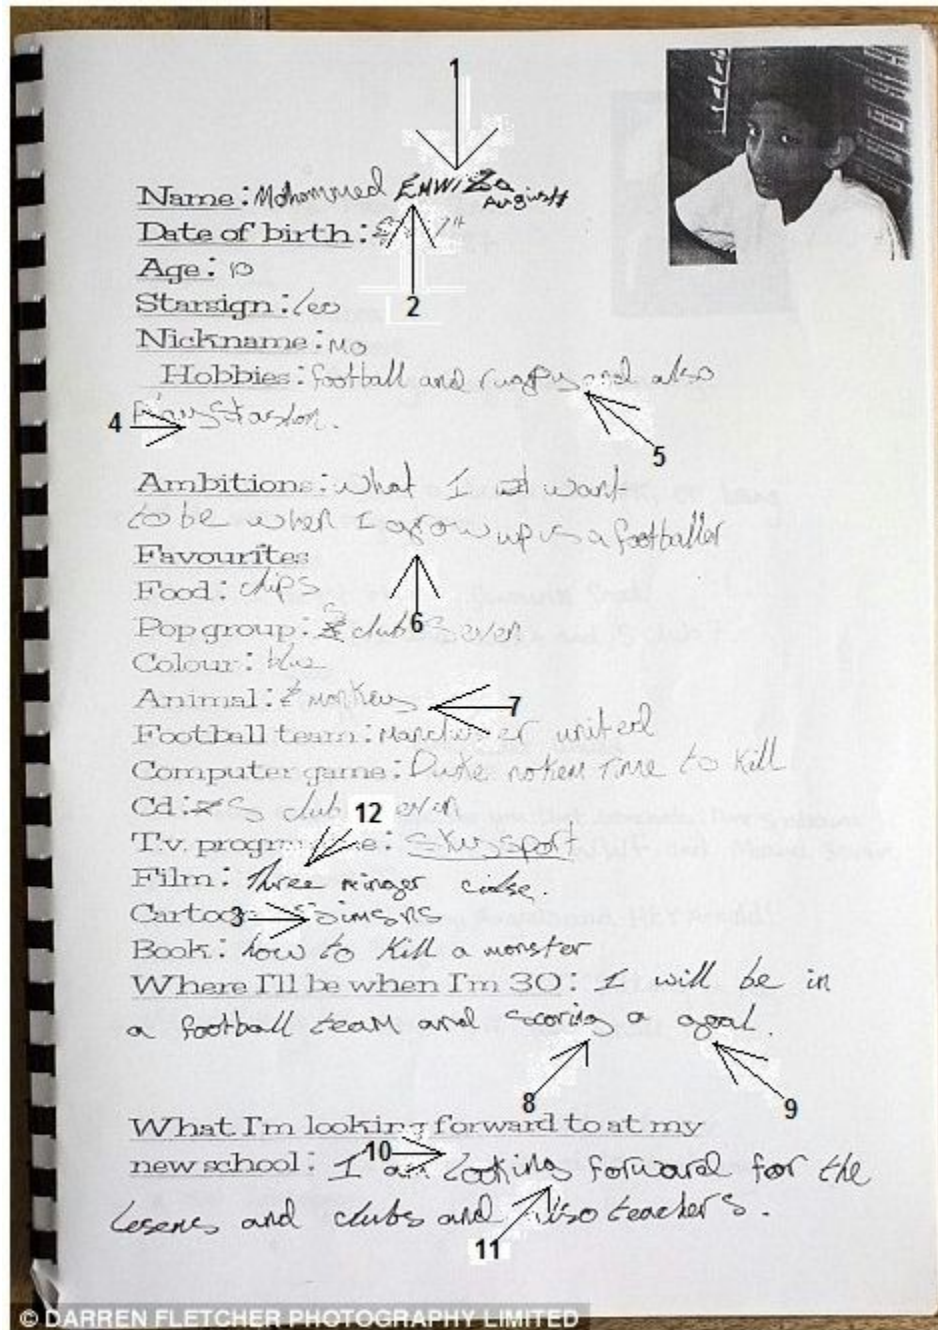 1
Name: Mohammed EMWIZa
Augustt
Date of birth:
Age: 10
Starsign: leo
2
Nickname: MO
Hobbies: football and rugpy and also
4 Playstastion.
5
Ambitions: what I want
to be when I grow up is a footballer
Favourites
Food: chips
6
Pop group: S club Seven
Colour: blue
Animal: monkey 7
Football team: Manchester united
Computer game: Duke noken Time to Kill
Cd: S club 12
T.v. programme: Sky sport
Film: three ninger
Cartoon 3 Simsns
Book: how to Kill a monster
Where I'll be when I'm 30: I will be in
a football team and scoring a goal.
8 9
What I'm looking forward to at my
10
new school: I am looking forward for the
lesens and clubs and also teachers.
11
© DARREN FLETCHER PHOTOGRAPHY LIMITED